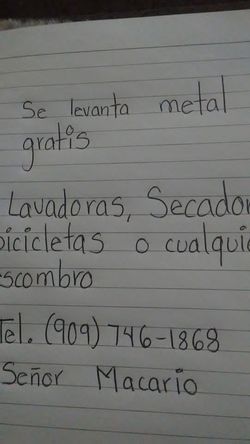 Se levanta metal
gratis
Lavadoras, Secador
bicicletas o cualqui
escombro
Tel. (909) 746-1868
Señor Macario